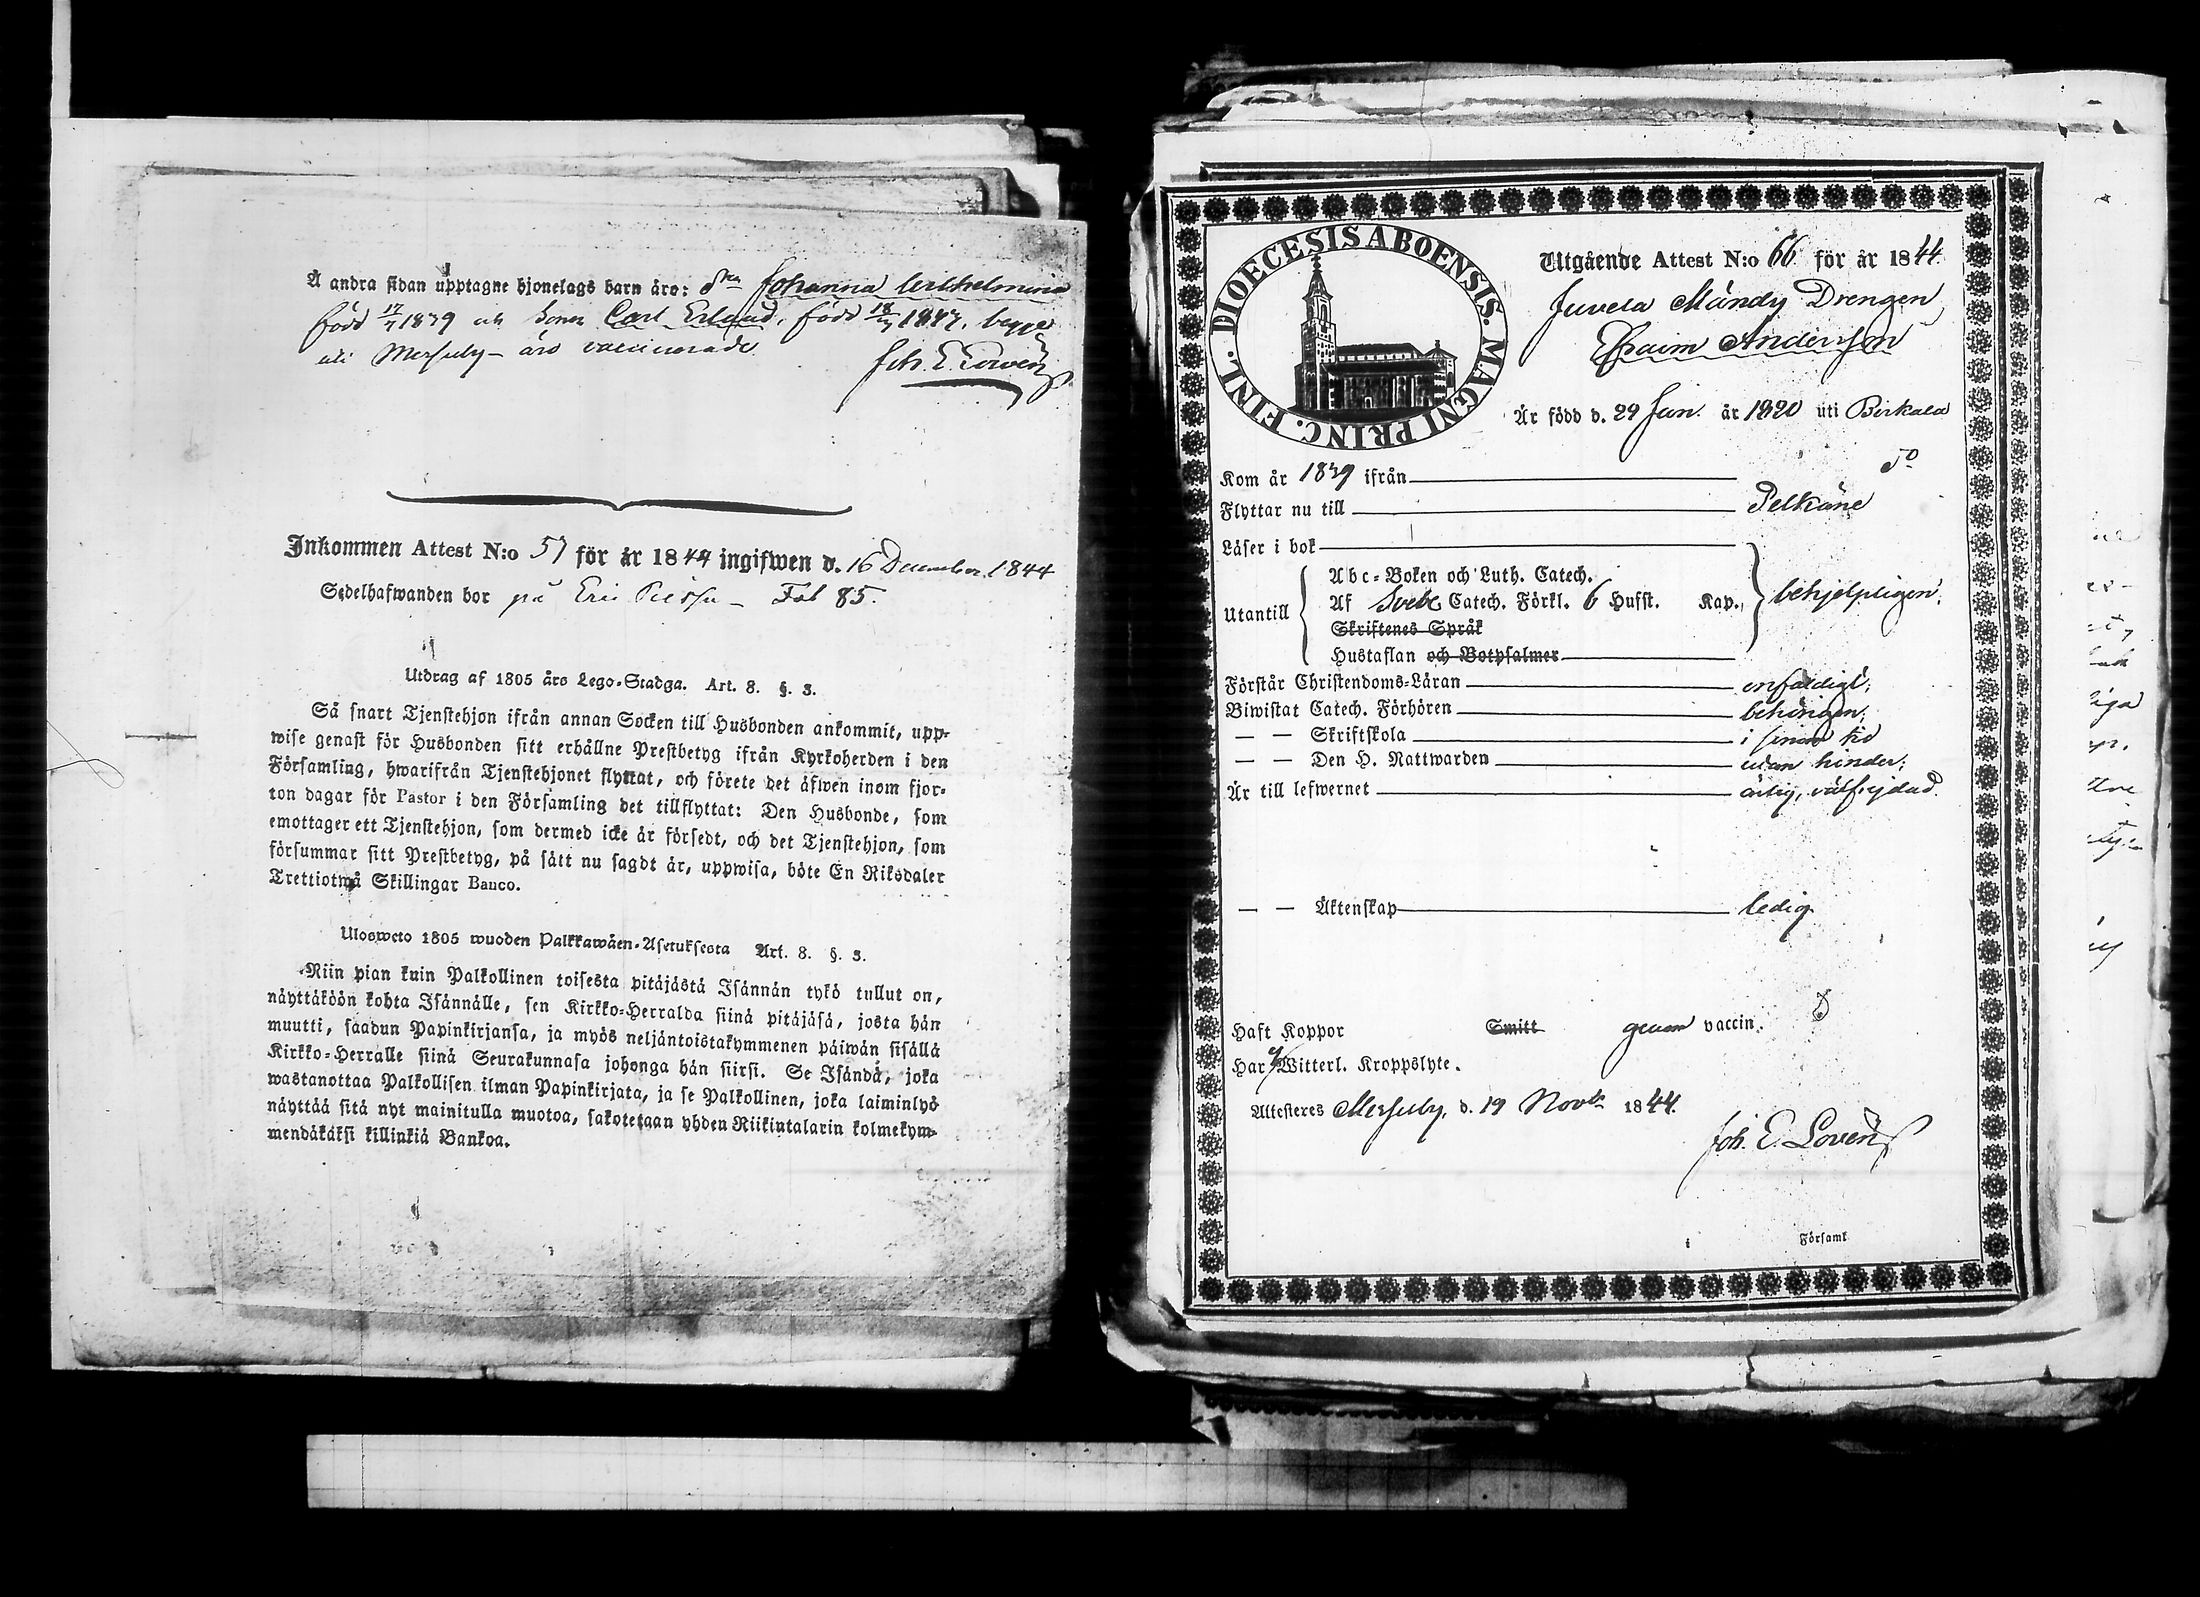 Å andra sidan upptagne hjonelags barn äro: Dtr Johanna Wilhelmina
född 17/7 1839 och Sonen Carl Erland, född 18/7 1843, begge
uti Messuby – äro vaccinerade.
Joh. E. Lovén
Inkommen Attest N:o 57 för år 1844 ingifwen d. 16 December 1844
Sedelhafwanden bor på Eric – Fol 85.
Utdrag af 1805 års Lego-Stadga. Art. 8. §. 3.
Så snart Tjenstehjon ifrån annan Socken till Husbonden ankommit, upp-
wise genast för Husbonden sitt erhållne Prestbetyg ifrån Kyrkoherden i den
Församling, hwarifrån Tjenstehjonet flyttat, och förete det äfwen inom fjor-
ton dagar för Pastor i den Församling det tillflyttat: Den Husbonde, som
emottager ett Tjenstehjon, som dermed icke är försedt, och det Tjenstehjon, som
försummar sitt Prestbetyg, på sätt nu sagdt är, uppwisa, böte En Riksdaler
Trettiotwå Skillingar Banco.
Ulosweto 1805 wuoden Palkkawäen-Asetuksesta Art. 8. §. 3.
Niin pian kuin Palkollinen toisesta pitäjästä Isännän tykö tullut on,
näyttäköön kohta Isännälle, sen Kirkko-Herralda siinä pitäjäsä, josta hän
muutti, saadun Papinkirjansa, ja myös neljäntoistakymmenen päiwän sisällä
Kirkko-Herralle siinä Seurakunnasa johonga hän siirsi. Se Isändä, joka
wastanottaa Palkollisen ilman Papinkirjata, ja se Palkollinen, joka laiminlyö
näyttää sitä nyt mainitulla muotoa, sakotetaan yhden Riikintalarin kolmekym-
mendäkaksi killinkiä Bankoa.
FINL. DIOECESIS ABOENSIS. MAGNI PRINC.
Utgående Attest N:o 66 för år 1844
Juvela Mändy Drengen
Efraim Andersson
Är född d. 29 Jan. år 1820 uti Birkala
Kom år 1839 ifrån do
Flyttar nu till Pelkäne
Läser i bok
Abc-Boken och Luth. Catech.
Utantill Af Svebe Catech. Förkl. 6 Hufst. Kap. behjelpligen;
Skriftenes Språk
Hustaflan och Botpsalmer
Förstår Christendoms-Läran enfaldigt;
Biwistat Catech. Förhören behörigen;
— — Skriftskola i sinom tid
— — Den H. Nattwarden utan hinder;
Är till lefwernet ärlig, välfrejdad.
— — Äktenskap ledig
Haft Koppor Smitt genom vaccin.
Har ej Witterl. Kroppslyte.
Attesteres Messuby, d. 19 Novbr 1844.
Joh. E. Lovén
Församl